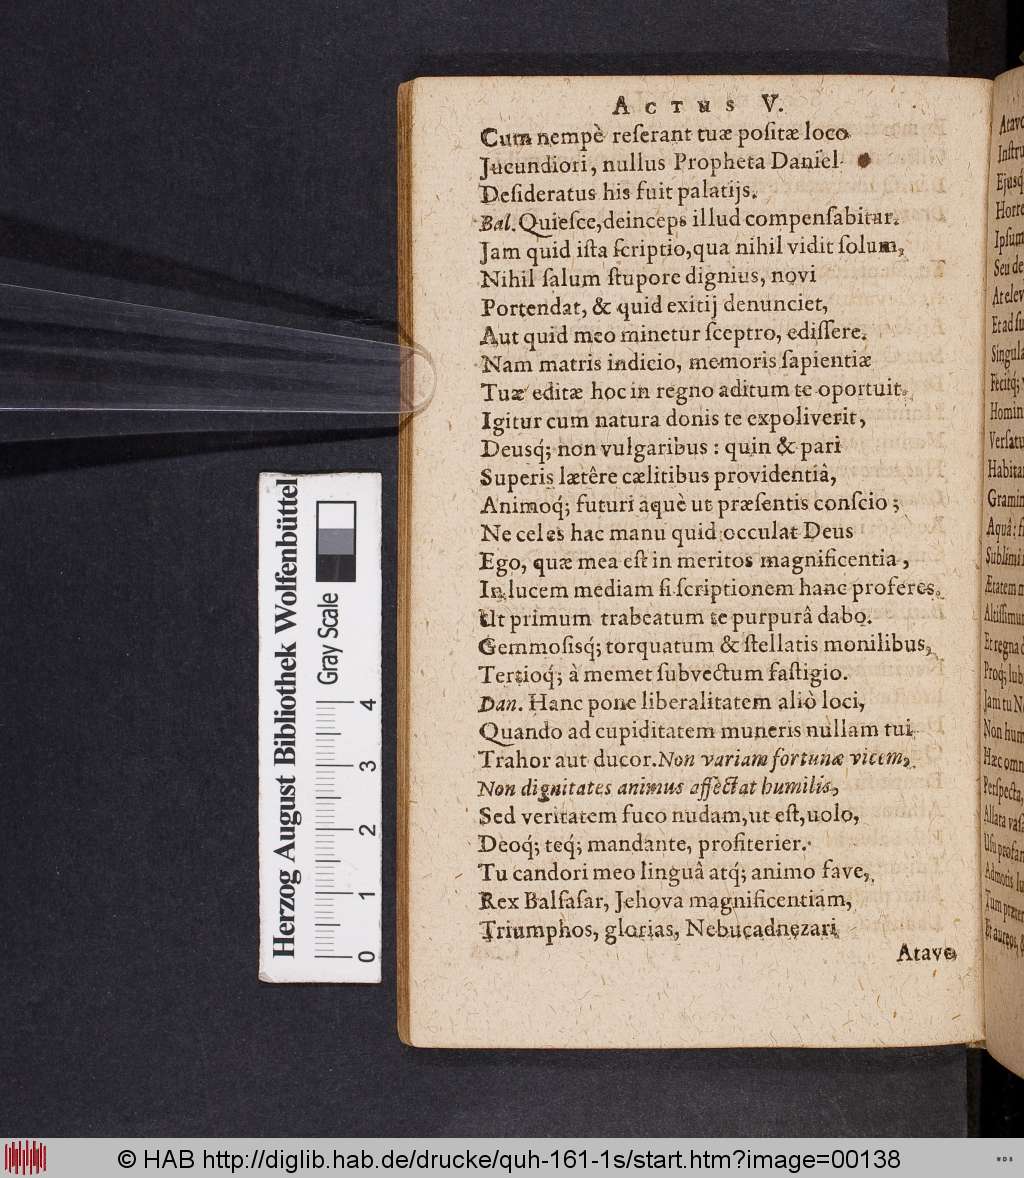 ACTUS V.
Cum nempè reſerant tuæ poſitæ loco
Jucundiori, nullus Propheta Daniel
Deſideratus his fuit palatijs.
Bal. Quieſce, deinceps illud compenſabitur.
Jam quid iſta ſcriptio, qua nihil vidit ſolum,
Nihil ſalum ſtupore dignius, novi
Portendat, & quid exitij denunciet,
Aut quid meo minetur ſceptro, ediſſere.
Nam matris indicio, memoris ſapientiæ
Tuæ editæ hoc in regno aditum te oportuit.
Igitur cum natura donis te expoliverit,
Deusq; non vulgaribus: quin & pari
Superis lætêre cælitibus providentiâ,
Animoq; futuri æquè ut præſentis conſcio;
Ne celes hac manu quid occulat Deus
Ego, quæ mea eſt in meritos magnificentia,
In lucem mediam ſi ſcriptionem hanc proferes,
Ut primum trabeatum te purpurâ dabo.
Gemmoſisq; torquatum & ſtellatis monilibus,
Tertioq; à memet ſubvectum faſtigio.
Dan. Hanc pone liberalitatem aliò loci,
Quando ad cupiditatem muneris nullam tui
Trahor aut ducor. Non variam fortunæ vicem,
Non dignitates animus affectat humilis,
Sed veritatem fuco nudam, ut eſt, uolo,
Deoq; teq; mandante, profiterier.
Tu candori meo linguâ atq; animo fave,
Rex Balſaſar, Jehova magnificentiam,
Triumphos, glorias, Nebucadnezari
Atavo
Herzog August Bibliothek Wolfenbüttel
Gray Scale
0 1 2 3 4
Habitan
Ætatem m
Altiſſimum
Jam tu Ne
Hæc omn
Perſpecta,
© HAB http://diglib.hab.de/drucke/quh-161-1s/start.htm?image=00138